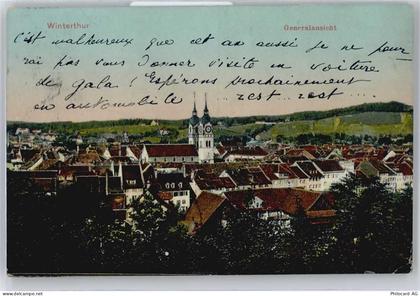 Winterthur
Generalansicht
C'est malheureux que cet an aussi je ne pour
rai pas vous donner visite en voiture
de gala! Espérons prochainement
en automobile — rest... rest...
PHILATELIE.CH